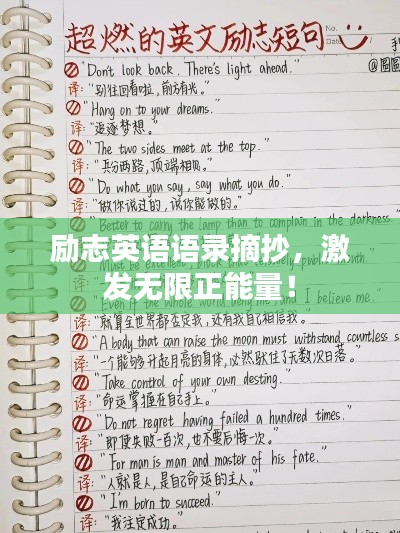 超燃的英文励志短句
No.
Date
@圖圖
"Don't look back. There's light ahead."
译:"别往回看啦,前方有光。"
"Hang on to your dreams."
译:"追逐梦想。"
"The two sides meet at the top."
译:"兵分两路,顶端相见。"
"Do what you say, say what you do."
译:"做你说过的,说你能做的。"
"Better to carry the lamp than to complain in the darkness.
励志英语语录摘抄,激
发无限正能量!
me and I believe me."
译:"就算全世界都否定我,还有我自己相信我。"
"A body that can raise the moon must withstand countless s
"一个能够升起月亮的身体,必然驮住了无数次日落。"
"Take control of your own desting."
译:"命运掌握在自己手上。"
"Do not regret having failed a hundred times.
译:"即使失败一百次,也不要后悔一次。"
"For man is man and master of his fate."
译:"人就是人,是自己命运的主人。"
"I'm born to succeed."
译:"我注定成功。"